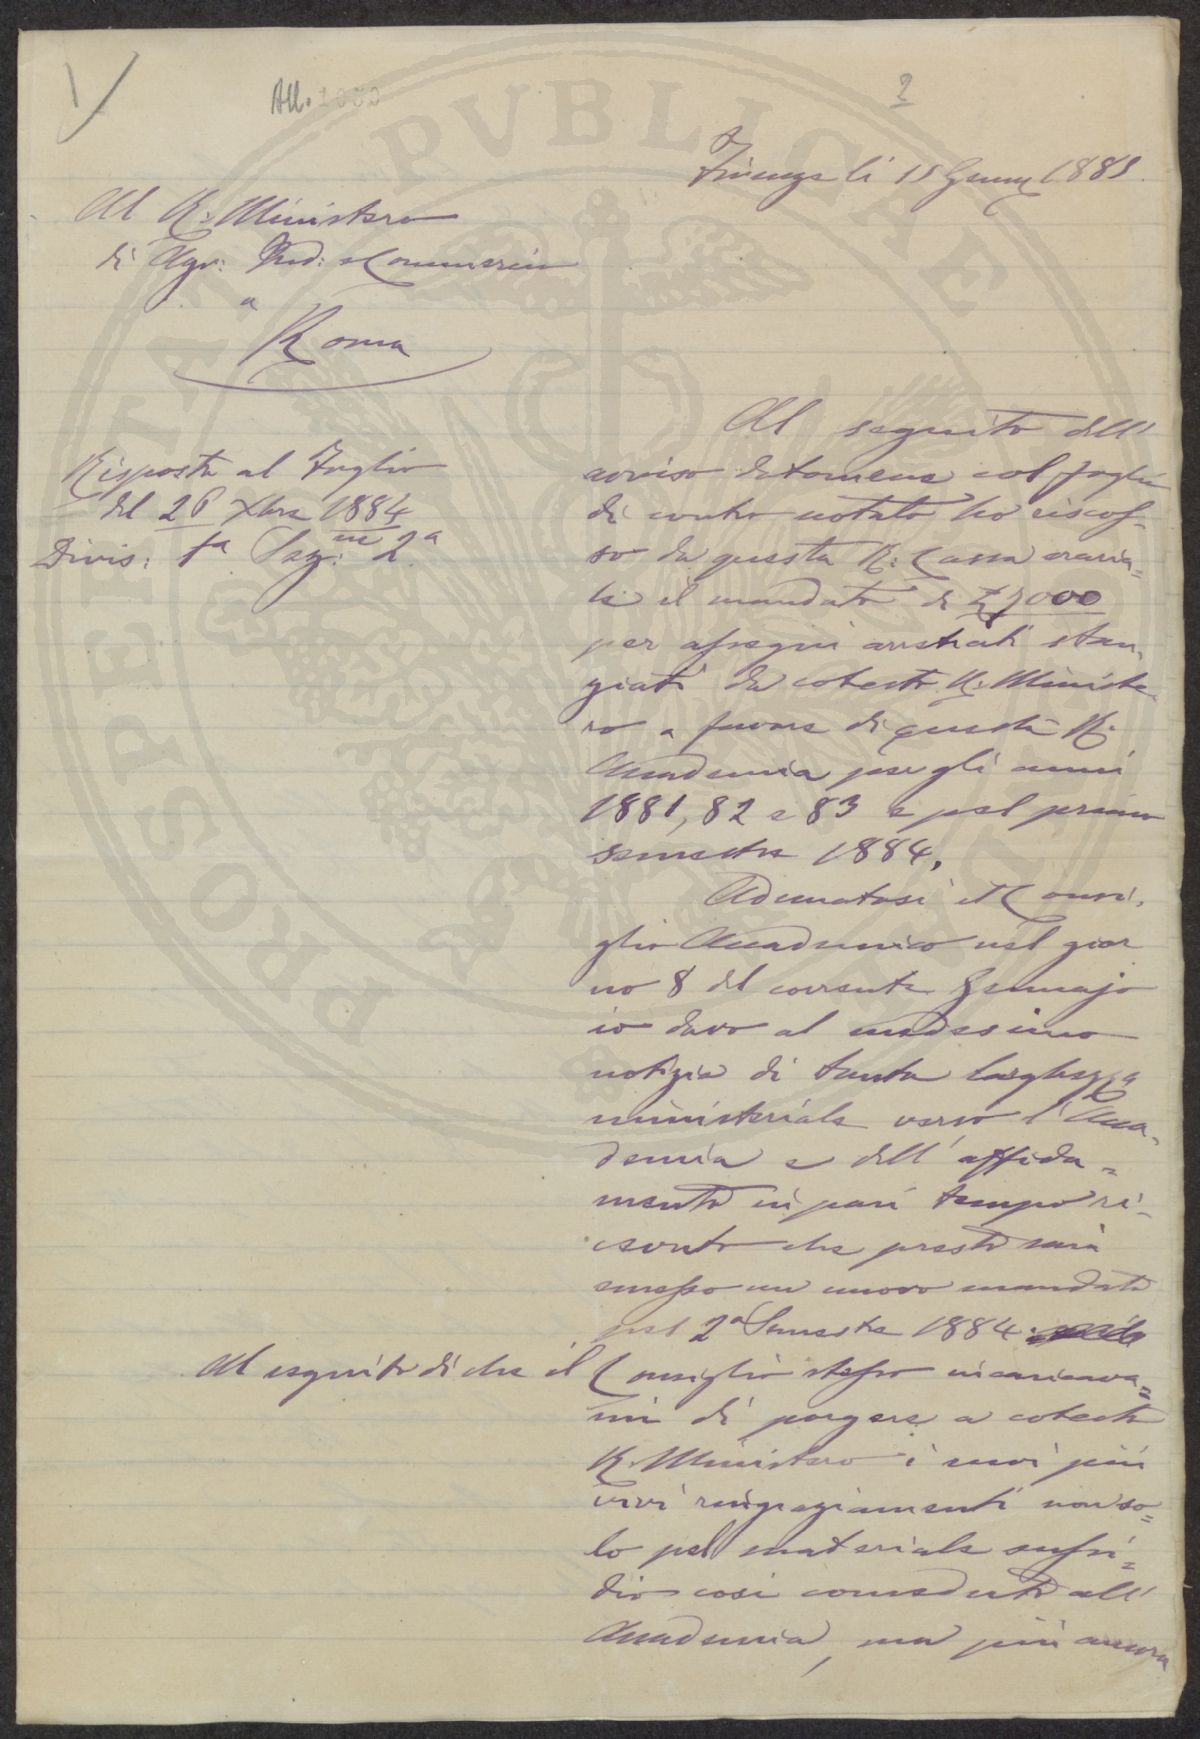 All. 1030
2
Firenze li 15 Genn. 1885.
Al R. Ministero
di Agr: Ind: e Commercio
a
Roma
Risposta al Foglio
del 26 Xbre 1884
Divis: 1ª Sez: 2ª
Al seguito dell'
avviso datomene col foglio
di contro notato ho riscos-
so da questa R: Cassa eraria=
le il mandato di
per assegni arretrati stan-
ziati da cotesto R. Ministe-
ro a favore di questa R.
Accademia per gli anni
1881, 82 e 83 e pel primo
semestre 1884.
Adunatosi il Consi-
glio Accademico nel gior
no 8 del corrente Gennajo
io davo al medesimo
notizia di tanta larghezza
ministeriale verso l'Acca-
demia e dell'affida=
mento in pari tempo ri-
cevuto che presto sarà
emesso un nuovo mandato
pel 2º Semestre 1884.
Al seguito di che il Consiglio stesso incaricava=
mi di porgere a cotesto
R. Ministero i suoi più
vivi ringraziamenti non so=
lo pel materiale sussi=
dio così conceduto all'
Accademia, ma più ancora
PROSPERITATI PVBLICAE